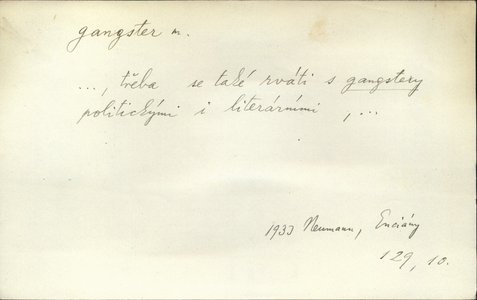 gangster m.
..., třeba se také rváti s gangstery
politickými i literárními , ...
1933 Neumann, Enciány
129, 10.